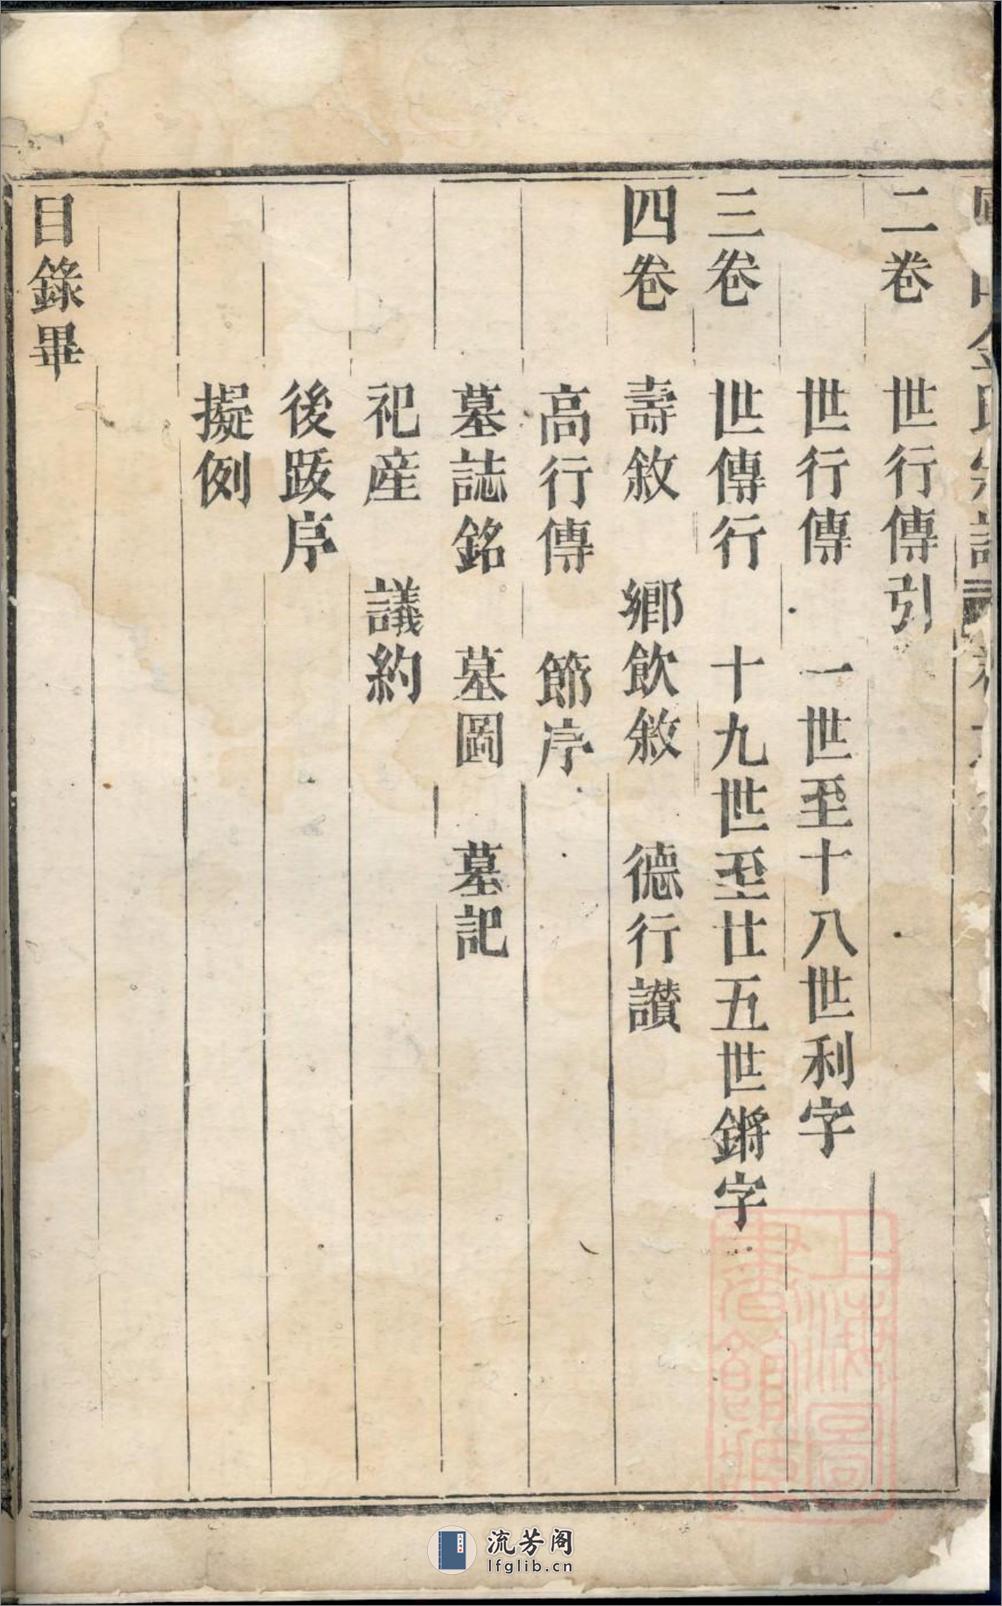 金氏宗譜
二卷　世行傳引
世行傳　一世至十八世利字
三卷　世傳行　十九世至廿五世鏘字
四卷　壽敘　鄉飲敘　德行讃
高行傳　節序
墓誌銘　墓圖　墓記
祀產　議約
後跋序
擬例
目錄畢
上海圖書館藏
流芳阁
lfglib.cn